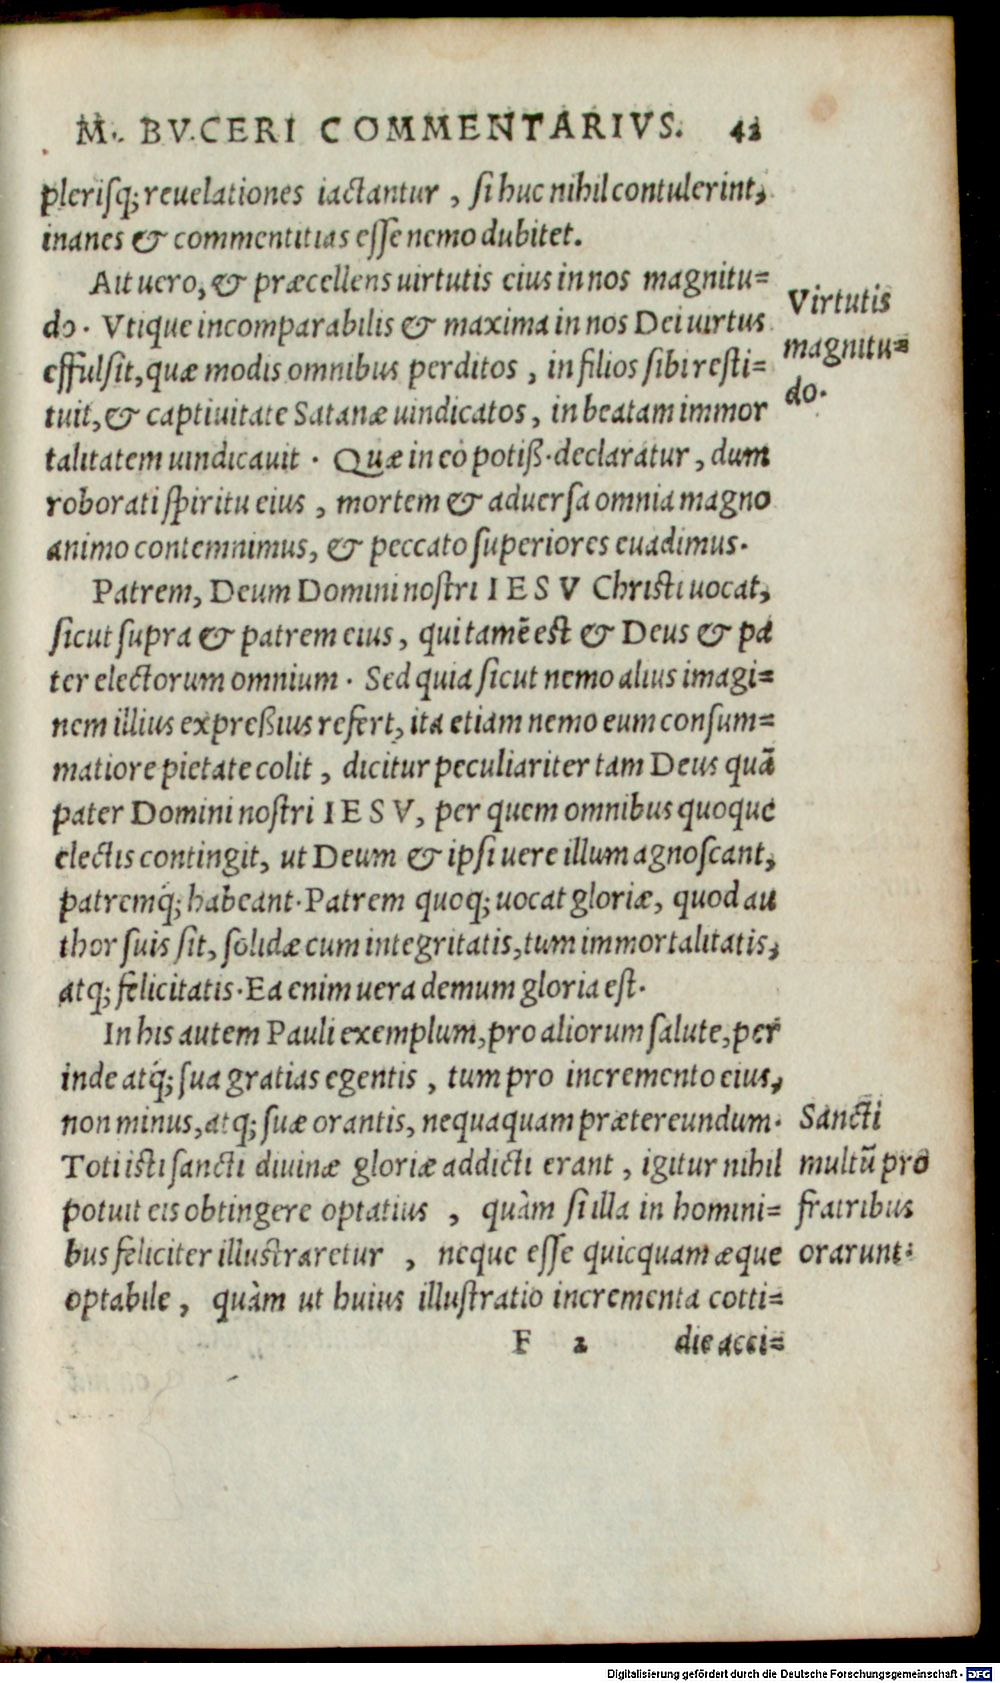 M. BVCERI COMMENTARIVS. 42
plerisq; reuelationes iactantur, si huc nihil contulerint,
inanes & commentitias esse nemo dubitet.
Ait uero, & præcellens uirtutis eius in nos magnitu=
do. Vtique incomparabilis & maxima in nos Dei uirtus
effulsit, quæ modis omnibus perditos, in filios sibi resti=
tuit, & captiuitate Satanæ uindicatos, in beatam immor
talitatem uindicauit. Quæ in eo potiß. declaratur, dum
roborati spiritu eius, mortem & aduersa omnia magno
animo contemnimus, & peccato superiores euadimus.
Virtutis
magnitu=
do.
Patrem, Deum Domini nostri IESV Christi uocat,
sicut supra & patrem eius, qui tamẽ est & Deus & pa
ter electorum omnium. Sed quia sicut nemo alius imagi=
nem illius expreßius refert, ita etiam nemo eum consum=
matiore pietate colit, dicitur peculiariter tam Deus quã
pater Domini nostri IESV, per quem omnibus quoque
electis contingit, ut Deum & ipsi uere illum agnoscant,
patremq́; habeant. Patrem quoq; uocat gloriæ, quod au
thor suis sit, solidæ cum integritatis, tum immortalitatis,
atq; felicitatis. Ea enim uera demum gloria est.
In his autem Pauli exemplum, pro aliorum salute, per
inde atq́; sua gratias egentis, tum pro incremento eius,
non minus, atq; suæ orantis, nequaquam prætereundum.
Toti isti sancti diuinæ gloriæ addicti erant, igitur nihil
potuit eis obtingere optatius, quàm si illa in homini=
bus feliciter illustraretur, neque esse quicquam æque
optabile, quàm ut huius illustratio incrementa cotti=
Sancti
multũ pro
fratribus
orarunt.
F 2 die acci=
Digitalisierung gefördert durch die Deutsche Forschungsgemeinschaft - DFG